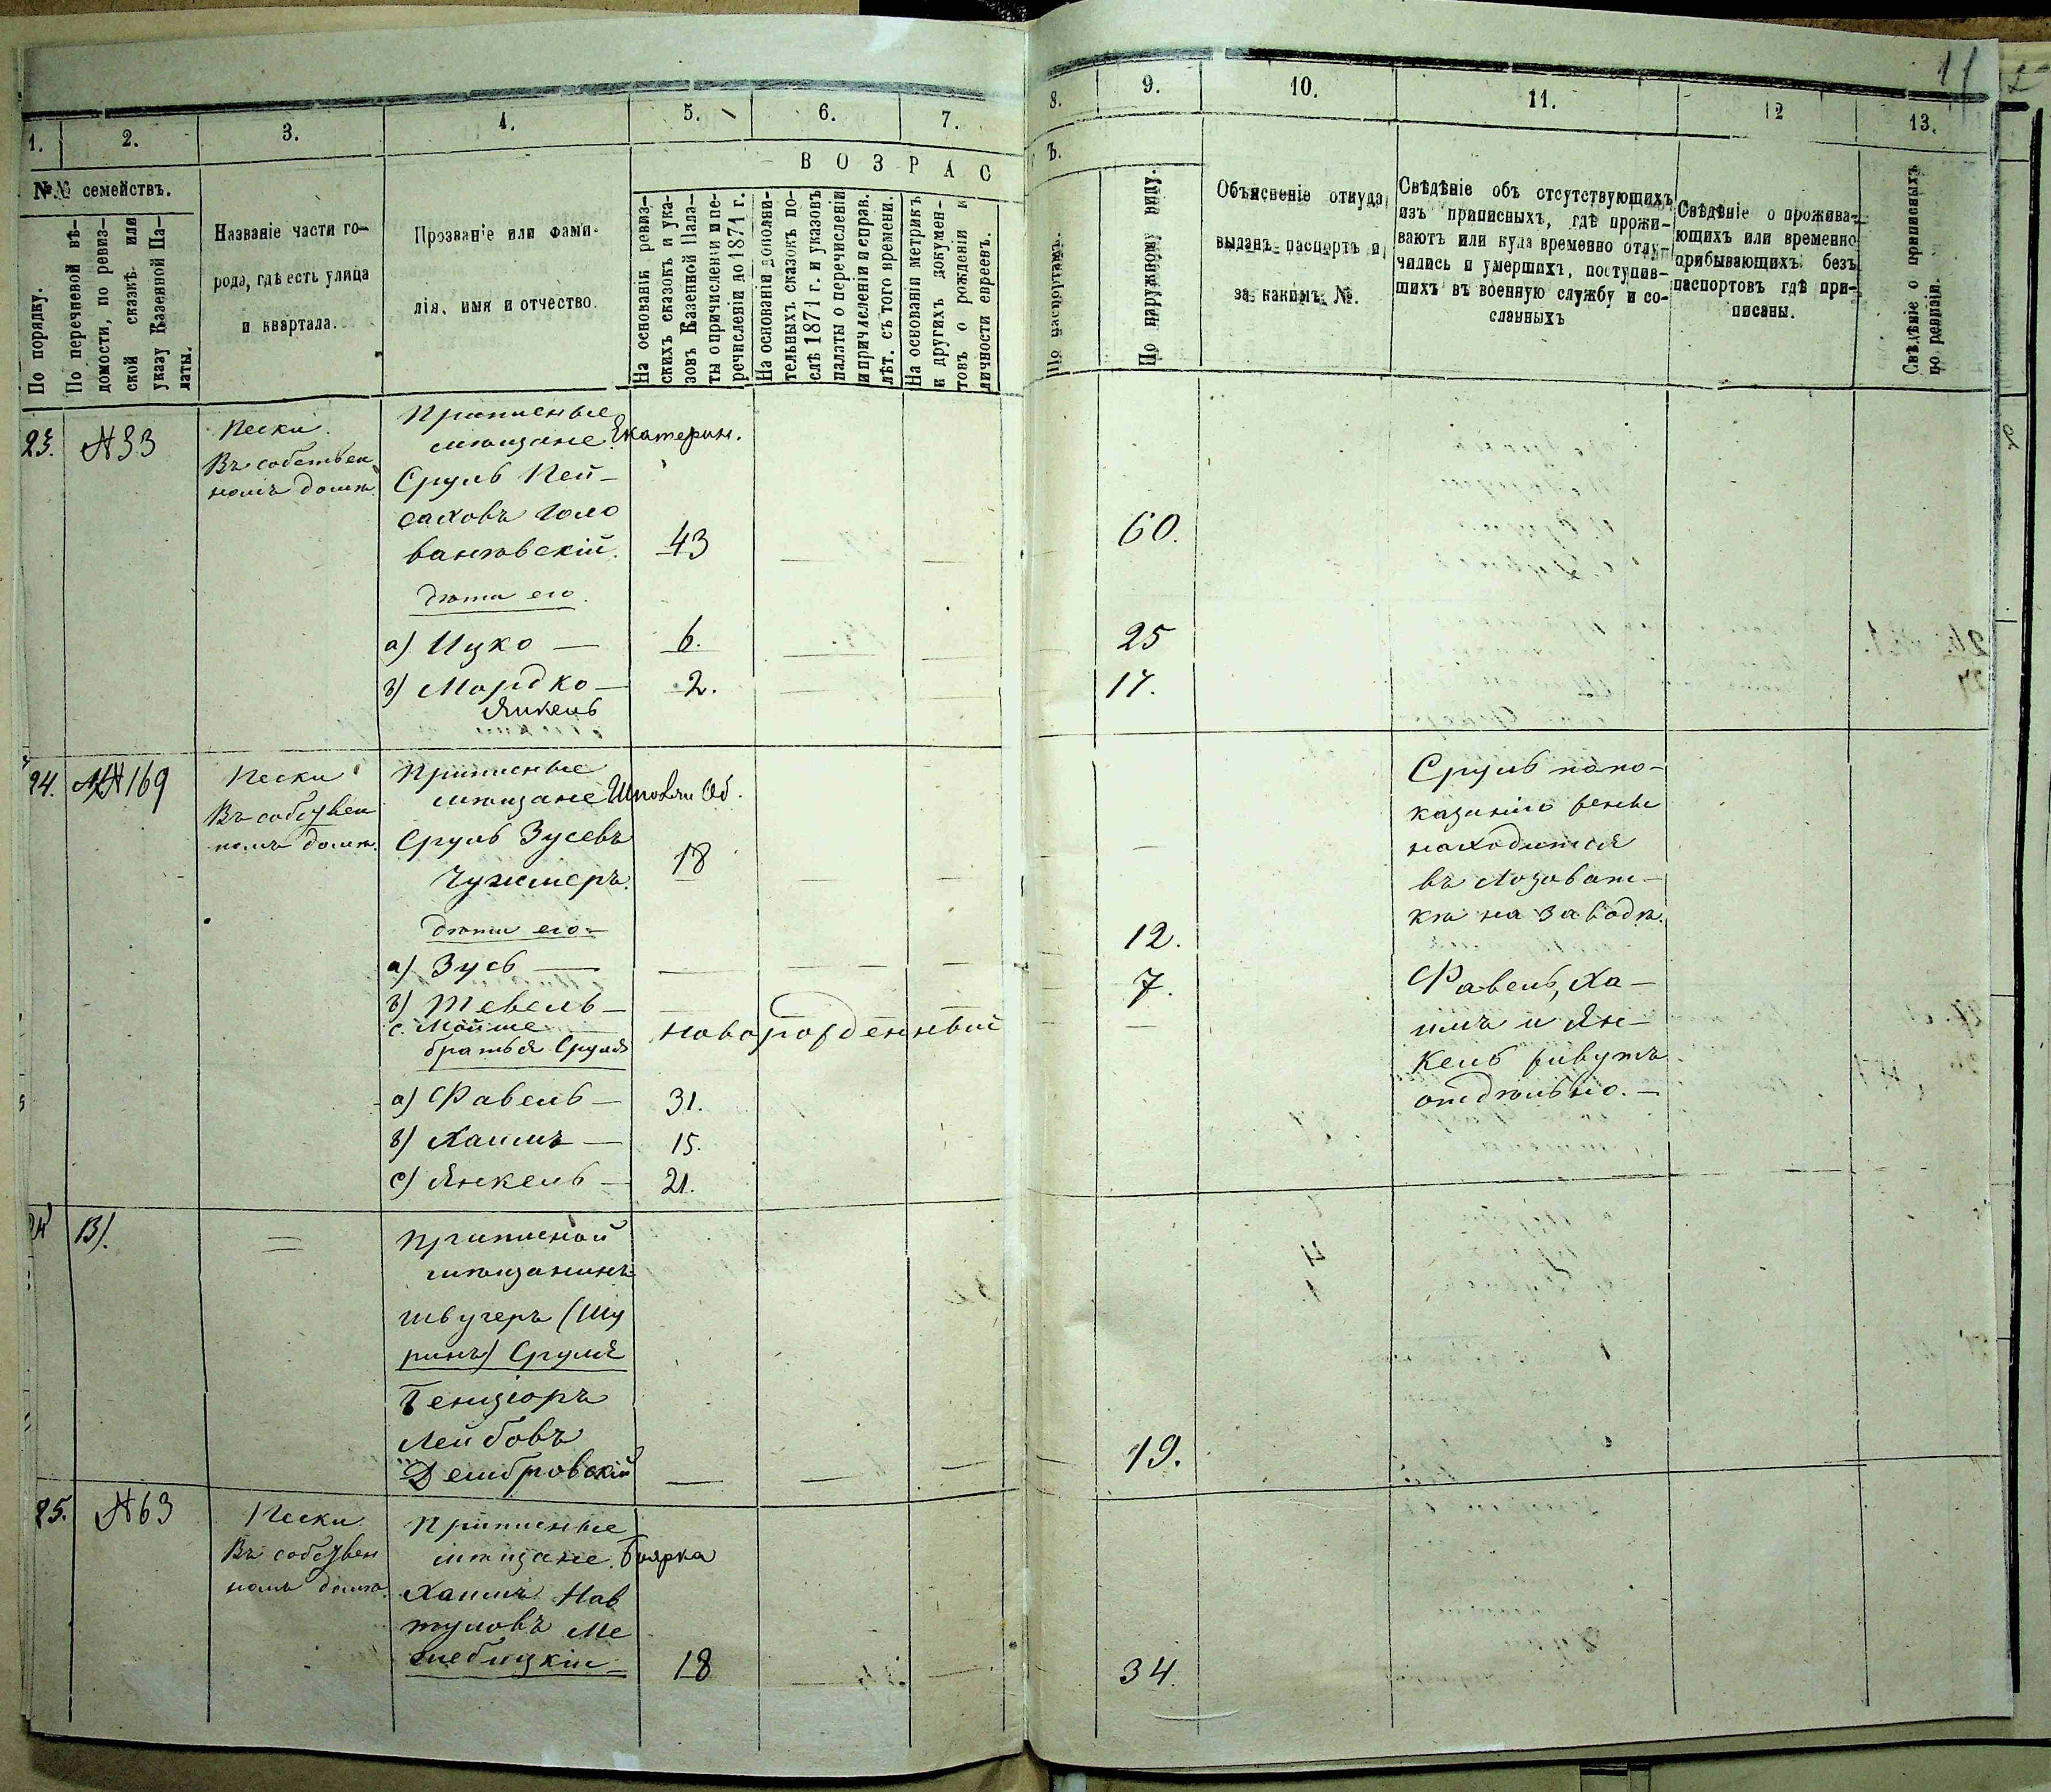 11
1.
2.
3.
4.
5.
6.
7.
8.
9.
10.
11.
12
13.
№№ семействъ.
По порядку.
По перечневой вѣ-
домости, по ревиз-
ской сказкѣ или
указу Казенной Па-
латы.
Названіе части го-
рода, гдѣ есть улица
и квартала.
Прозваніе или фами-
лія, имя и отчество.
ВОЗРАС
Ъ.
На основаніи ревиз-
скихъ сказокъ и ука-
зовъ Казенной Пала-
ты о причисленіи и пе-
речисленіи до 1871 г.
На основаніи дополни-
тельныхъ сказокъ по-
слѣ 1871 г. и указовъ
палаты о перечисленіи
и причисленіи и справ.
лѣт. съ того времени.
На основаніи метрикъ
и другихъ докумен-
товъ о рожденіи и
личности евреевъ.
По паспортамъ.
По наружному виду.
Объясненіе откуда
выданъ паспортъ и
за какимъ №.
Свѣдѣніе объ отсутствующихъ
изъ приписныхъ, гдѣ прожи-
ваютъ или куда временно отлу-
чились и умершихъ, поступив-
шихъ въ военную службу и со-
сланныхъ
Свѣдѣніе о прожива-
ющихъ или временно
прибывающихъ безъ
паспортовъ гдѣ при-
писаны.
Свѣдѣніе о приписныхъ
по ревизіи.
23.
№33
Пески.
Въ собствен
номъ домѣ.
Приписные
мѣщане. Екатерин.
Сруль Пей-
саховъ Голо
ванѣвскій.
43
60.
дѣти его.
а) Ицко —
6.
25
в) Мордко —
2.
17.
Янкель
24.
№№169
Пески
Въ собствен
номъ домѣ.
Приписные
мѣщане
Сруль Зусевъ
Чужмеръ.
18
дѣти его-
а) Зусь —
12.
в) Тевель —
7.
с. Мойше —
новорожденный
братья Сруля
а) Фавель —
31.
в) Хаимъ —
15.
с) Янкель —
21.
Сруль по по-
казанію жены
находится
въ Лозоват-
кѣ на заводѣ.
Фавель, Ха-
имъ и Ян-
кель живутъ
отдѣльно. —
24
В).
=
Приписной
мѣщанинъ
швугеръ (Шу
ринъ) Сруля
Бенціоръ
Лейбовъ
Дембровскій
19.
25.
№63
Пески
Въ собствен
номъ домѣ.
Приписные
мѣщане. Боярка
Хаимъ Нав
туловъ Ме
жебицкій
18
34.